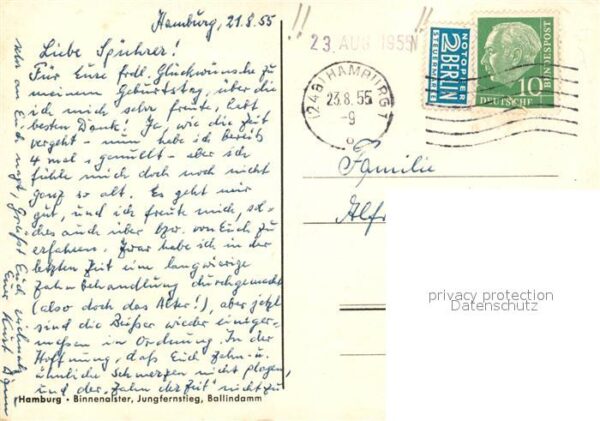 Hamburg, 21.8.55
Liebe Spührer!
Für Eure frdl. Glückwünsche zu
meinem Geburtstag, über die
ich mich sehr freute, habt
besten Dank! Ja, wie die Zeit
vergeht - nun habe ich bereits
4 mal "genullt" - aber ich
fühle mich doch noch nicht
ganz so alt. Es geht mir
gut, und ich freute mich, sol-
ches auch über bzw. von Euch zu
erfahren. Zwar habe ich in der
letzten Zeit eine langwierige
Zahnbehandlung durchgemacht
(also doch das Alter!), aber jetzt
sind die Beißer wieder einiger-
maßen in Ordnung. In der
Hoffnung, daß Euch Zahn- u.
ähnliche Schmerzen nicht plagen,
und der "Zahn der Zeit" nicht zu
sehr an Euch nagt, grüßt Euch vielmals
Euer Kurt
Hamburg • Binnenalster, Jungfernstieg, Ballindamm
23. AUG. 1955
(24a) HAMBURG 1
23.8.55
-9
o
NOTOPFER
2 BERLIN
STEUERMARKE
DEUTSCHE
BUNDESPOST
10
Familie
Alfr
privacy protection
Datenschutz